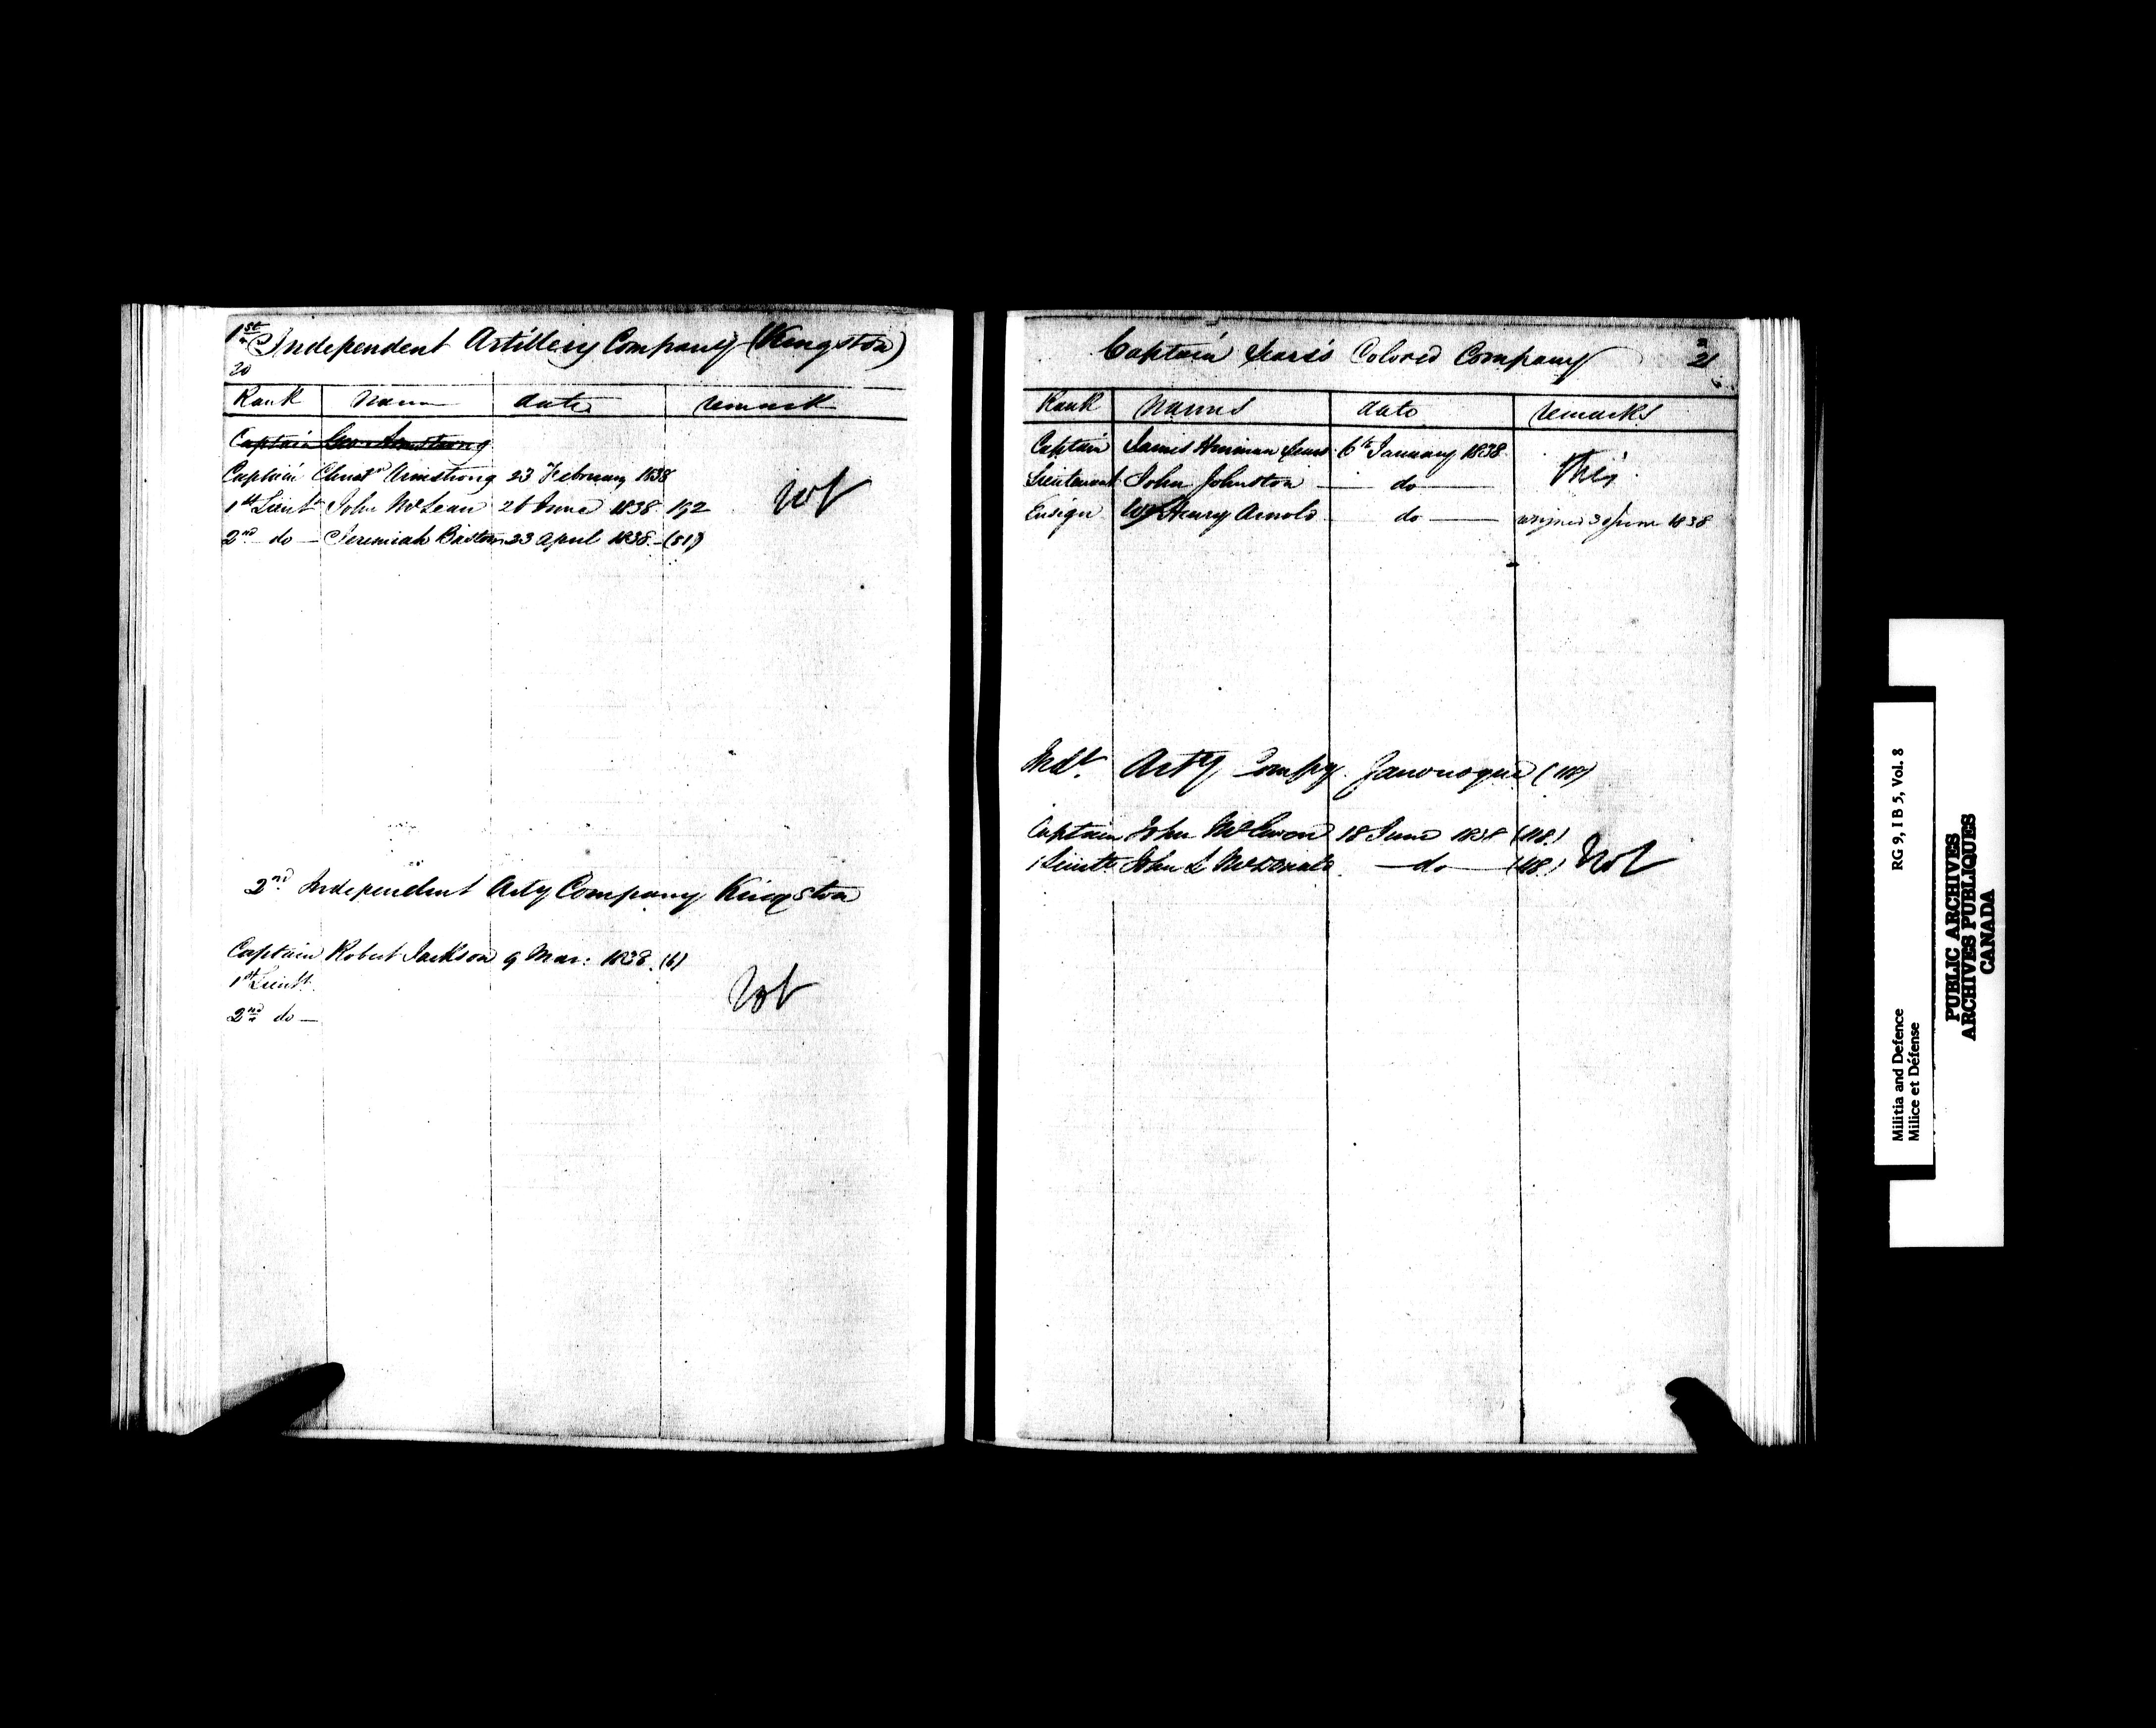 1st Independent Artillery Company (Kingston)
20
Rank name date remark
Captain Geo Armstrong
Captain Armstrong 23 February 1838
1st Lieut John McLean 26 June 1838 192 Not
2nd do Jeremiah 23 April 1838 (51)
2nd Independent Arty Company Kingston
Captain Robert Jackson 9 Mar: 1838 (6)
1st Lieut. Not
2nd do
Captain Sears's Colored Company 21
Rank Names date remarks
Captain James Sears 6th January 1838
Lieutenant John Johnston do This
Ensign Wm Henry Arnold do resigned 30 June 1838
Indt. Arty Compy. Gananoque (118)
Captain John 18 June 1838 (118)
1 Lieutt John L McDonald do (118) Not
Militia and Defence RG 9, I B 5, Vol. 8
Milice et Défense
PUBLIC ARCHIVES
ARCHIVES PUBLIQUES
CANADA